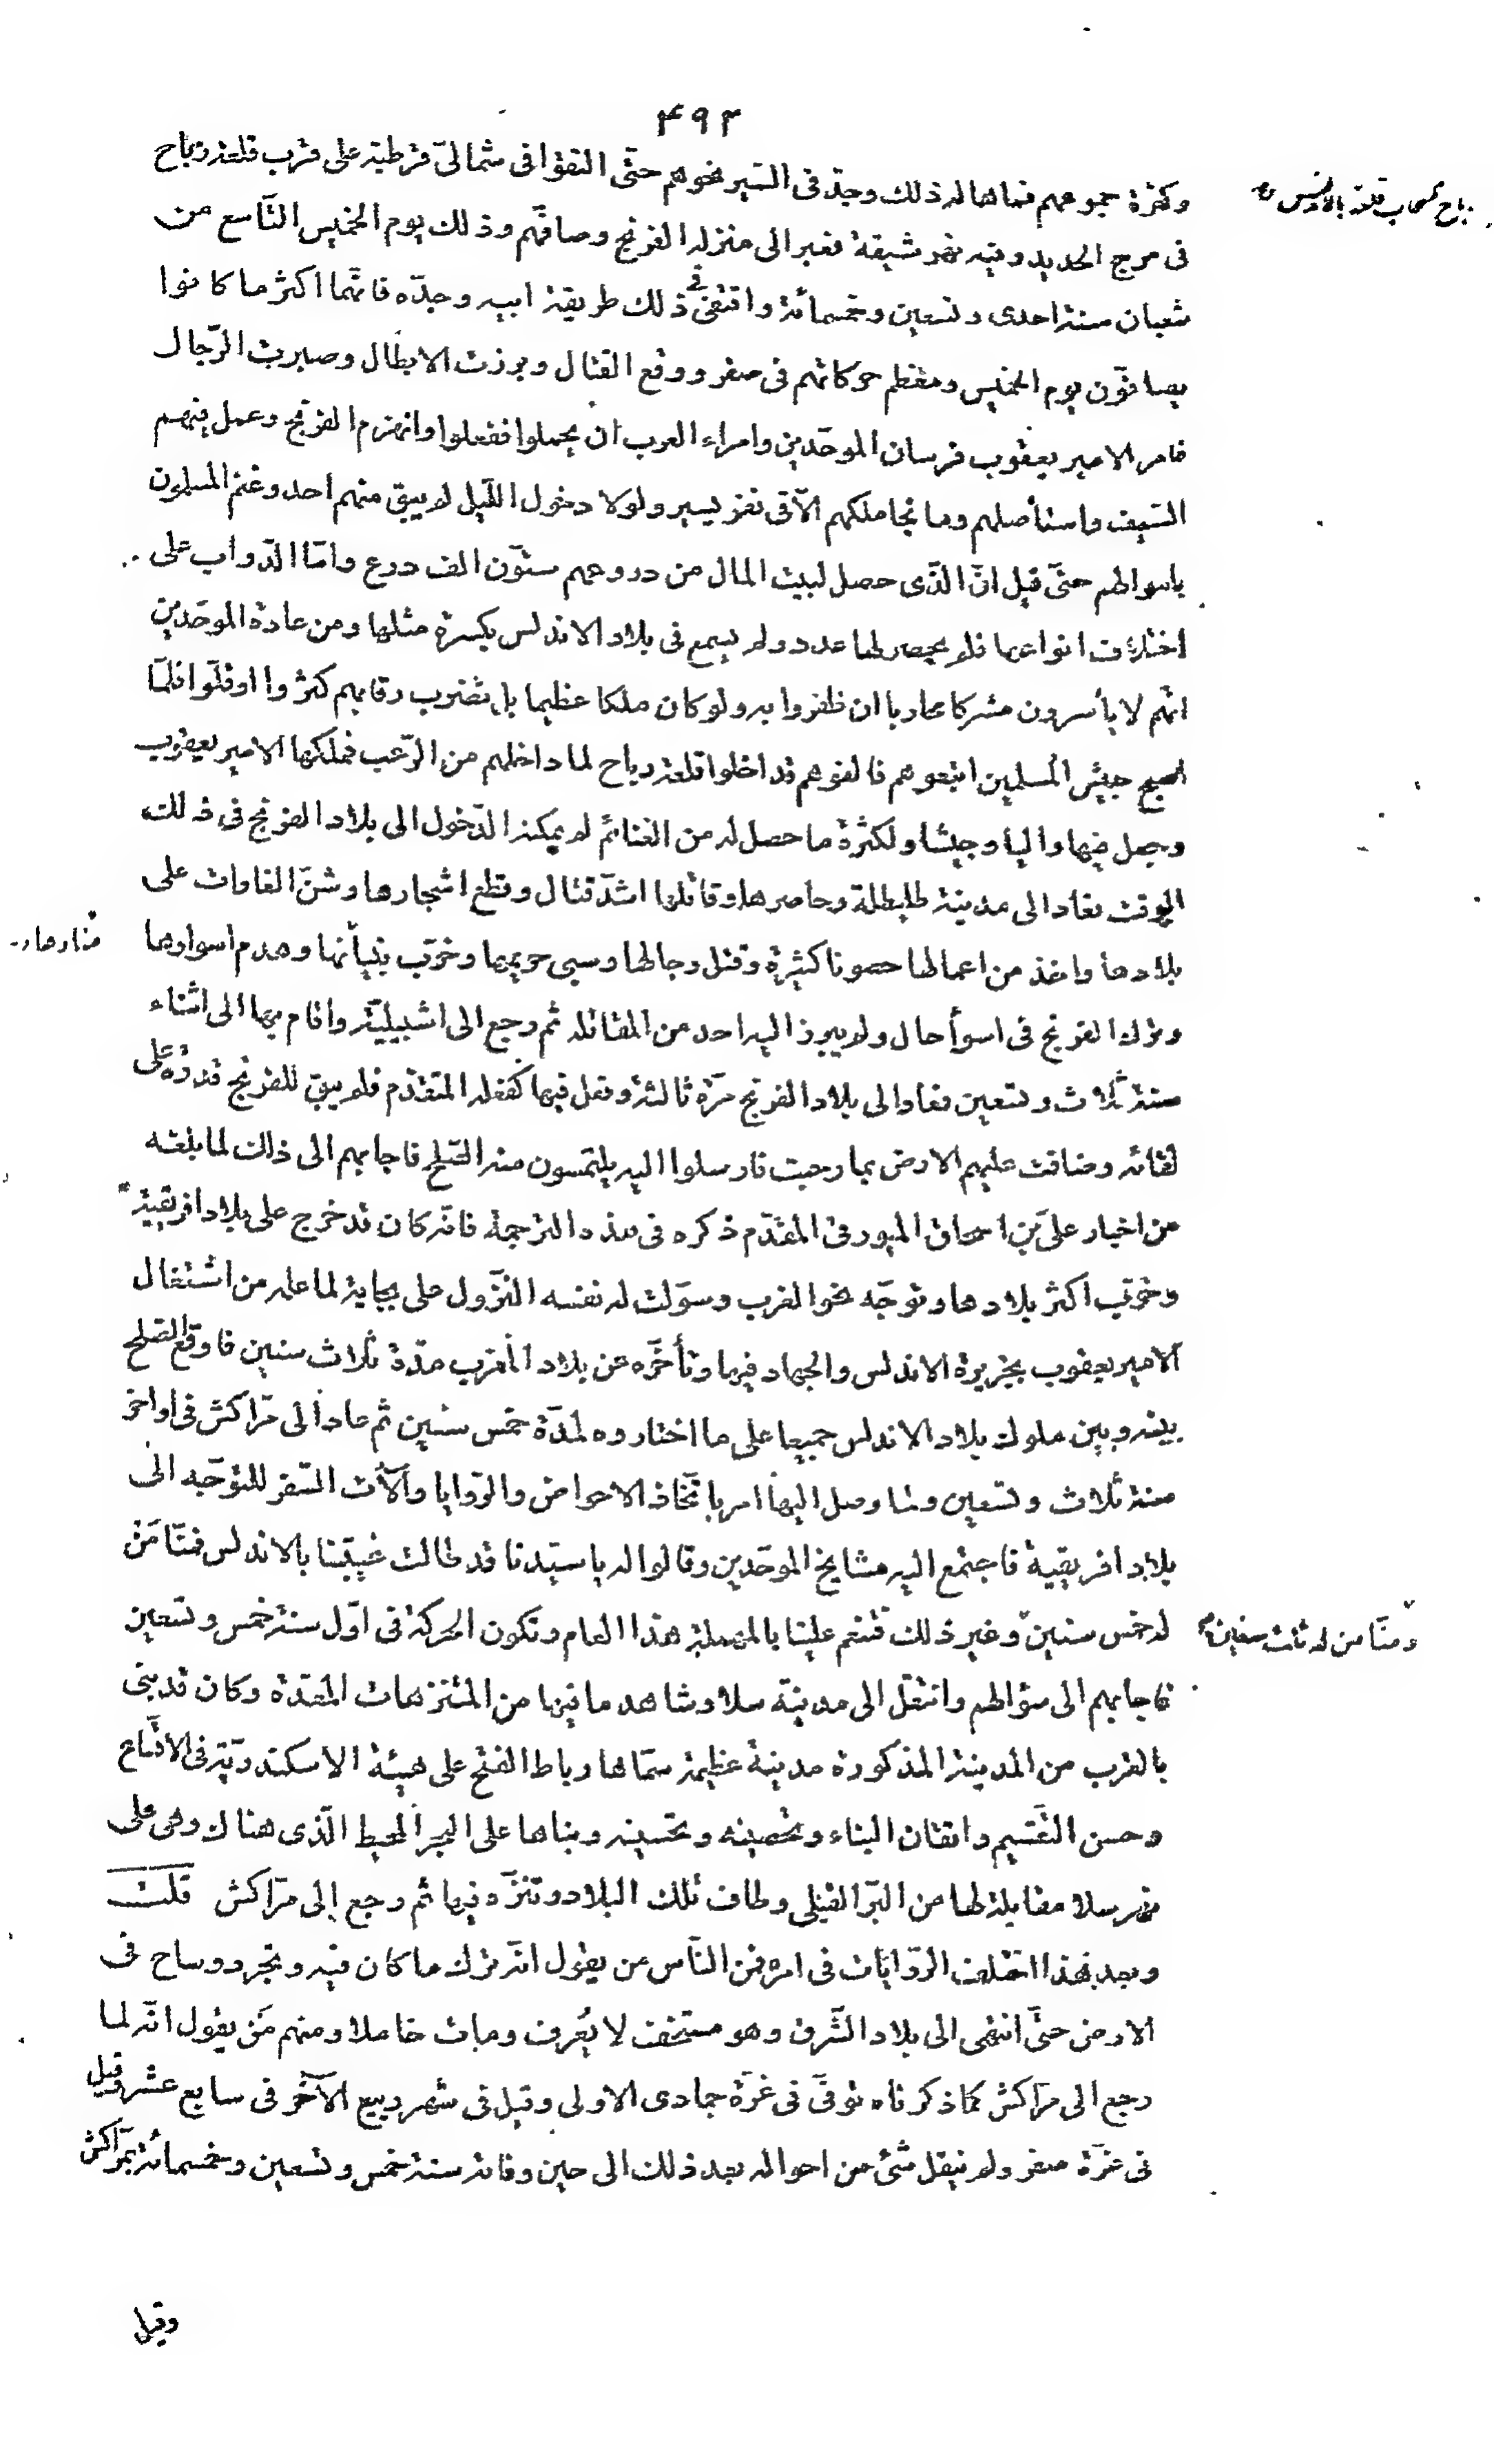 ٤٩٢
وكثرة جموعهم فما هاله ذلك وجدّ فى السّير نحوهم حتّى التقوا فى شمالىّ قرطبة على قرب قلعة رباح
رباح كسحاب قلعة بالاندلس
فى مرج الحديد وفيه نهر شيقة فعبر الى منزله الفرنج وصافّهم وذلك يوم الخميس التّاسع من
شعبان سنة احدى وتسعين وخمسمائة واقتفى فى ذلك طريقة ابيه وجدّه فانّهما اكثر ما كانوا
يصافّون يوم الخميس ومعظم حركاتهم فى صفر ووقع القتال وبرزت الابطال وصبرت الرّجال
فامر الامير يعقوب فرسان الموحّدين وامراء العرب ان يحملوا ففعلوا وانهزم الفرنج وعمل فيهم
السّيف واستأصلهم وما نجا ملكهم الّا فى نفر يسير ولولا دخول اللّيل لم يبق منهم احد وغنم المسلمون
باموالهم حتّى قيل انّ الّذى حصل لبيت المال من دروعهم ستّون الف درع وامّا الدّواب على
اختلاف انواعها فلم يحصر لها عدد ولم يسمع فى بلاد الاندلس بكسرة مثلها ومن عادة الموحّدين
انّهم لا يأسرون مشركا محاربا ان ظفروا به ولو كان ملكا عظيما بل تضرب رقابهم كثروا او قلّوا فلمّا
اصبح جيش المسلمين اتبعوهم فالفوهم قد اخلوا قلعة رباح لما داخلهم من الرّعب فملكها الامير يعقوب
وجعل فيها واليا وجيشا ولكثرة ما حصل له من الغنائم لم يمكنه الدّخول الى بلاد الفرنج فى ذلك
الوقت فعاد الى مدينة طليطلة وحاصرها وقاتلها اشدّ قتال وقطع اشجارها وشنّ الغارات على
بلادها واخذ من اعمالها حصونا كثيرة وقتل رجالها وسبى حريمها وخرّب بنيانها وهدم اسوارها
منارها
وترك الفرنج فى اسوأ حال ولم يبرز اليه احد من المقاتلة ثم رجع الى اشبيليّة واقام بها الى اثناء
سنة ثلاث وتسعين فعاد الى بلاد الفرنج مرّة ثالثة وفعل فيها كفعله المتقدّم فلم يبق للفرنج قدرة على
لقائه وضاقت عليهم الارض بما رحبت فارسلوا اليه يلتمسون منه الصّلح فاجابهم الى ذلك لما بلغه
من اخبار علىّ بن اسحاق الميورقى المقدّم ذكره فى هذه الترجمة فانّه كان قد خرج على بلاد افريقية
وخرّب اكثر بلادها وتوجّه نحو الغرب وسوّلت له نفسه النّزول على بجاية لما علم من اشتغال
الامير يعقوب بجزيرة الاندلس والجهاد فيها وتأخّره عن بلاد المغرب مدّة ثلاث سنين فاوقع الصّلح
بينه وبين ملوك بلاد الاندلس جميعا على ما اختاروه لمدّة خمس سنين ثم عاد الى مرّاكش فى اواخر
سنة ثلاث وتسعين ولمّا وصل اليها امر باتّخاذ الاحواض والرّوايا وآلات السّفر للتوجّه الى
بلاد افريقية فاجتمع اليه مشايخ الموحّدين وقالوا له يا سيّدنا قد طالت غيبتنا بالاندلس فمنّا مَن
له خمس سنين وغير ذلك فتنعم علينا بالمهملة هذا العام وتكون الحركة فى اوّل سنة خمس وتسعين
ومنّا من له ثلاث سنين
فاجابهم الى سؤالهم وانتقل الى مدينة سلا وشاهد ما فيها من المتنزهات المعدّة وكان قد بنى
بالقرب من المدينة المذكورة مدينة عظيمة سمّاها رباط الفتح على هيئة الاسكندريّة فى الاتّساع
وحسن التّقسيم واتقان البناء وتحصينه وتحسينه وبناها على البحر المحيط الّذى هناك وهى على
نهر سلا مقابلة لها من البرّ القبلى وطاف تلك البلاد وتنزّه فيها ثم رجع إلى مرّاكش قلت
وبعد هذا اختلفت الرّوايات فى امره فمن النّاس من يقول انّه ترك ما كان فيه وتجرد وساح فى
الارض حتّى انتهى الى بلاد الشّرق وهو مستخف لا يُعرف ومات خاملا ومنهم مَن يقول انّه لما
رجع الى مرّاكش كما ذكرناه توفّى فى غرّة جمادى الاولى وقيل فى شهر ربيع الآخر فى سابع عشر وقيل
فى غرّة صفر ولم ينقل شئ من احواله بعد ذلك الى حين وفاته سنة خمس وتسعين وخمسمائة بمرّاكش
وقيل